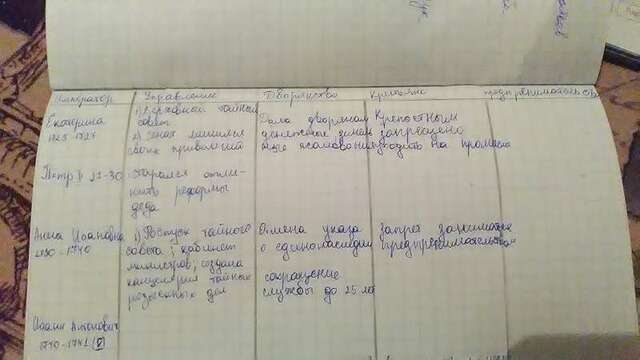 Император Управление Дворянство Крестьяне предпринимательство
Екатерина 1) Верховный тайный Дала дворянам Крепостным
1725-1727 совет денежное запрещено
2) Сенат лишился жалование уходить на промысел
своих привилегий
Петр II 27-30 Старался отме-
нить реформы
деда
Анна Иоановна 1) Роспуск тайного Отмена указа Запрет заниматься
1730-1740 совета; кабинет о единонаследии предпринимательством
министров; создана
канцелярия тайных сокращение
розыскных дел службы до 25 лет
Иоанн Антонович
1740-1741